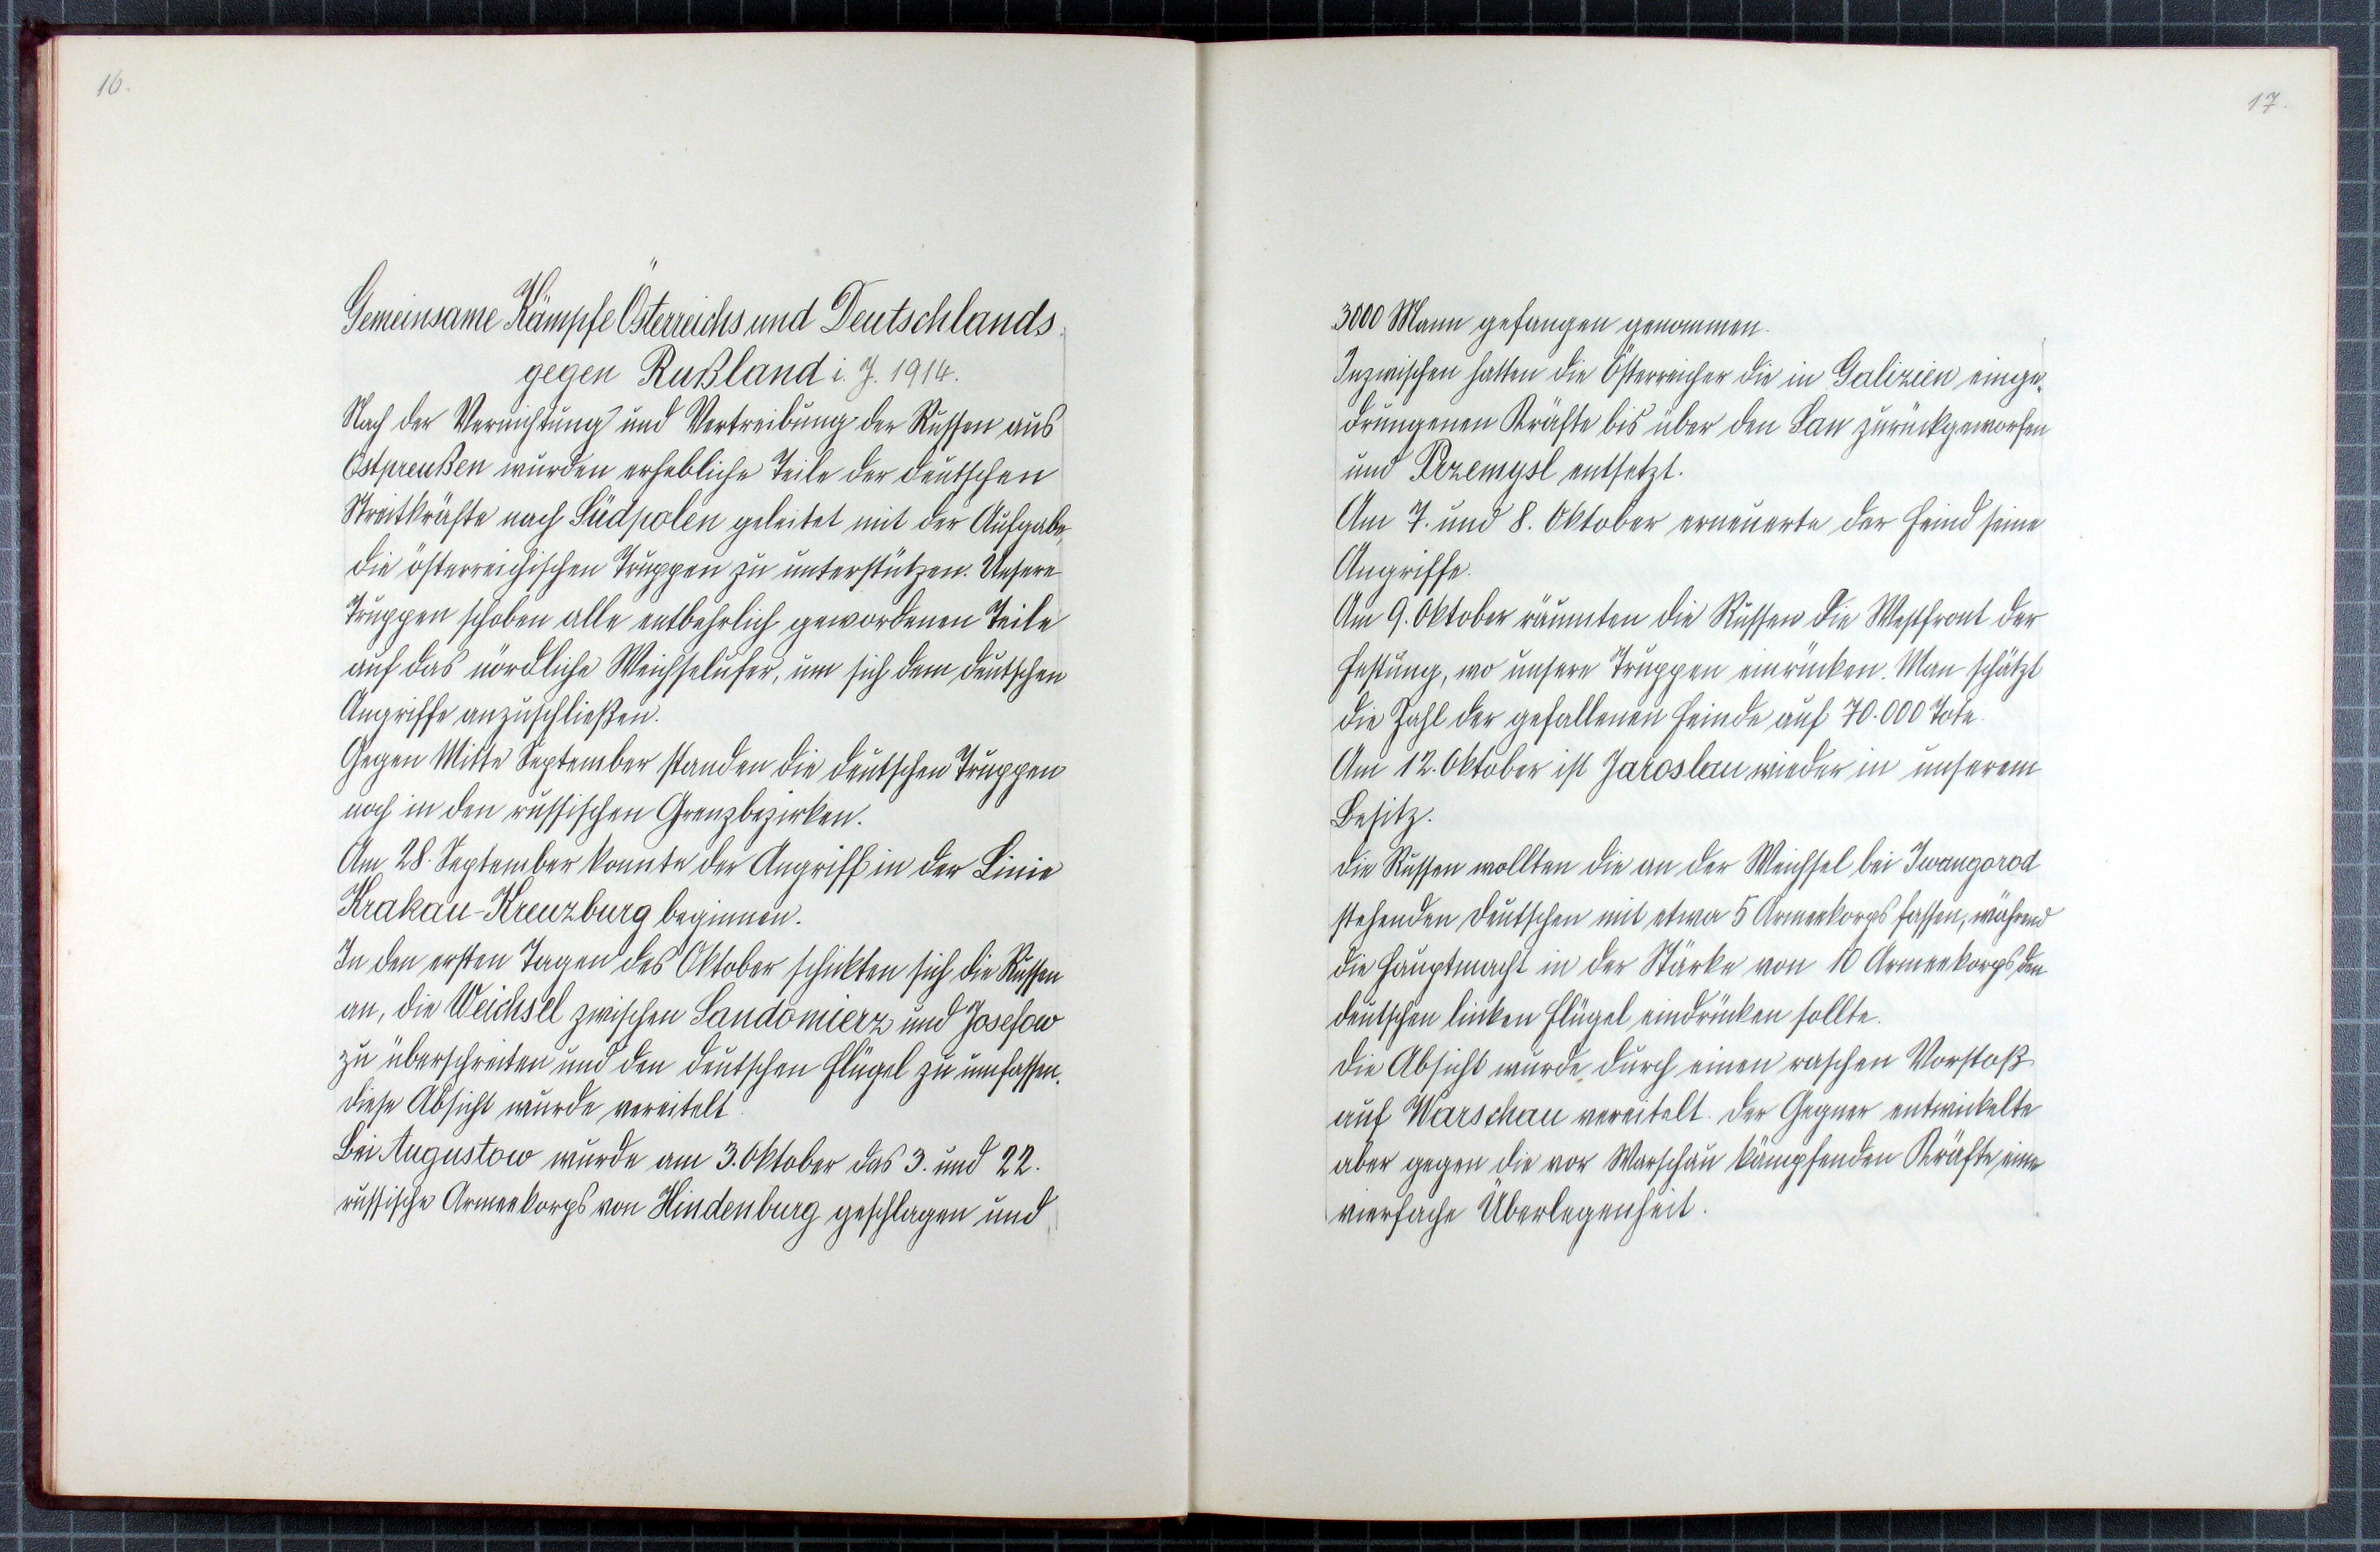 16.
Gemeinsame Kämpfe Österreichs und Deutschlands
gegen Rußland i. J. 1914.
Nach der Vernichtung und Vertreibung der Russen aus
Ostpreußen wurden erhebliche Teile der deutschen
Streitkräfte nach Südpolen geleitet mit der Aufgabe,
die österreichischen Truppen zu unterstützen. Unsere
Truppen schoben alle entbehrlich gewordenen Teile
auf das nördliche Weichselufer, um sich dem deutschen
Angriffe anzuschließen.
Gegen Mitte September standen die deutschen Truppen
noch in den russischen Grenzbezirken.
Am 28. September konnte der Angriff in der Linie
Krakau-Kreuzburg beginnen.
In den ersten Tagen des Oktober schickten sich die Russen
an, die Weichsel zwischen Sandomierz und Josefow
zu überschreiten und den deutschen Flügel zu umfassen.
Diese Absicht wurde vereitelt.
Bei Augustow wurde am 3. Oktober das 3. und 22.
russische Armeekorps von Hindenburg geschlagen und
17.
3000 Mann gefangen genommen.
Inzwischen hatten die Österreicher die in Galizien einge-
drungenen Kräfte bis über den San zurückgeworfen
und Przemysl entsetzt.
Am 7. und 8. Oktober erneuerte der Feind seine
Angriffe.
Am 9. Oktober räumten die Russen die Westfront der
Festung, wo unsere Truppen einrücken. Man schätzt
die Zahl der gefallenen Feinde auf 70.000 Tote.
Am 12. Oktober ist Jaroslau wieder in unserem
Besitz.
Die Russen wollten die an der Weichsel bei Iwangorod
stehenden Deutschen mit etwa 5 Armeekorps fassen, während
die Hauptmacht in der Stärke von 10 Armeekorps den
deutschen linken Flügel eindrücken sollte.
Die Absicht wurde durch einen raschen Vorstoß
auf Warschau vereitelt. Der Gegner entwickelte
aber gegen die vor Warschau kämpfenden Kräfte eine
vierfache Überlegenheit.